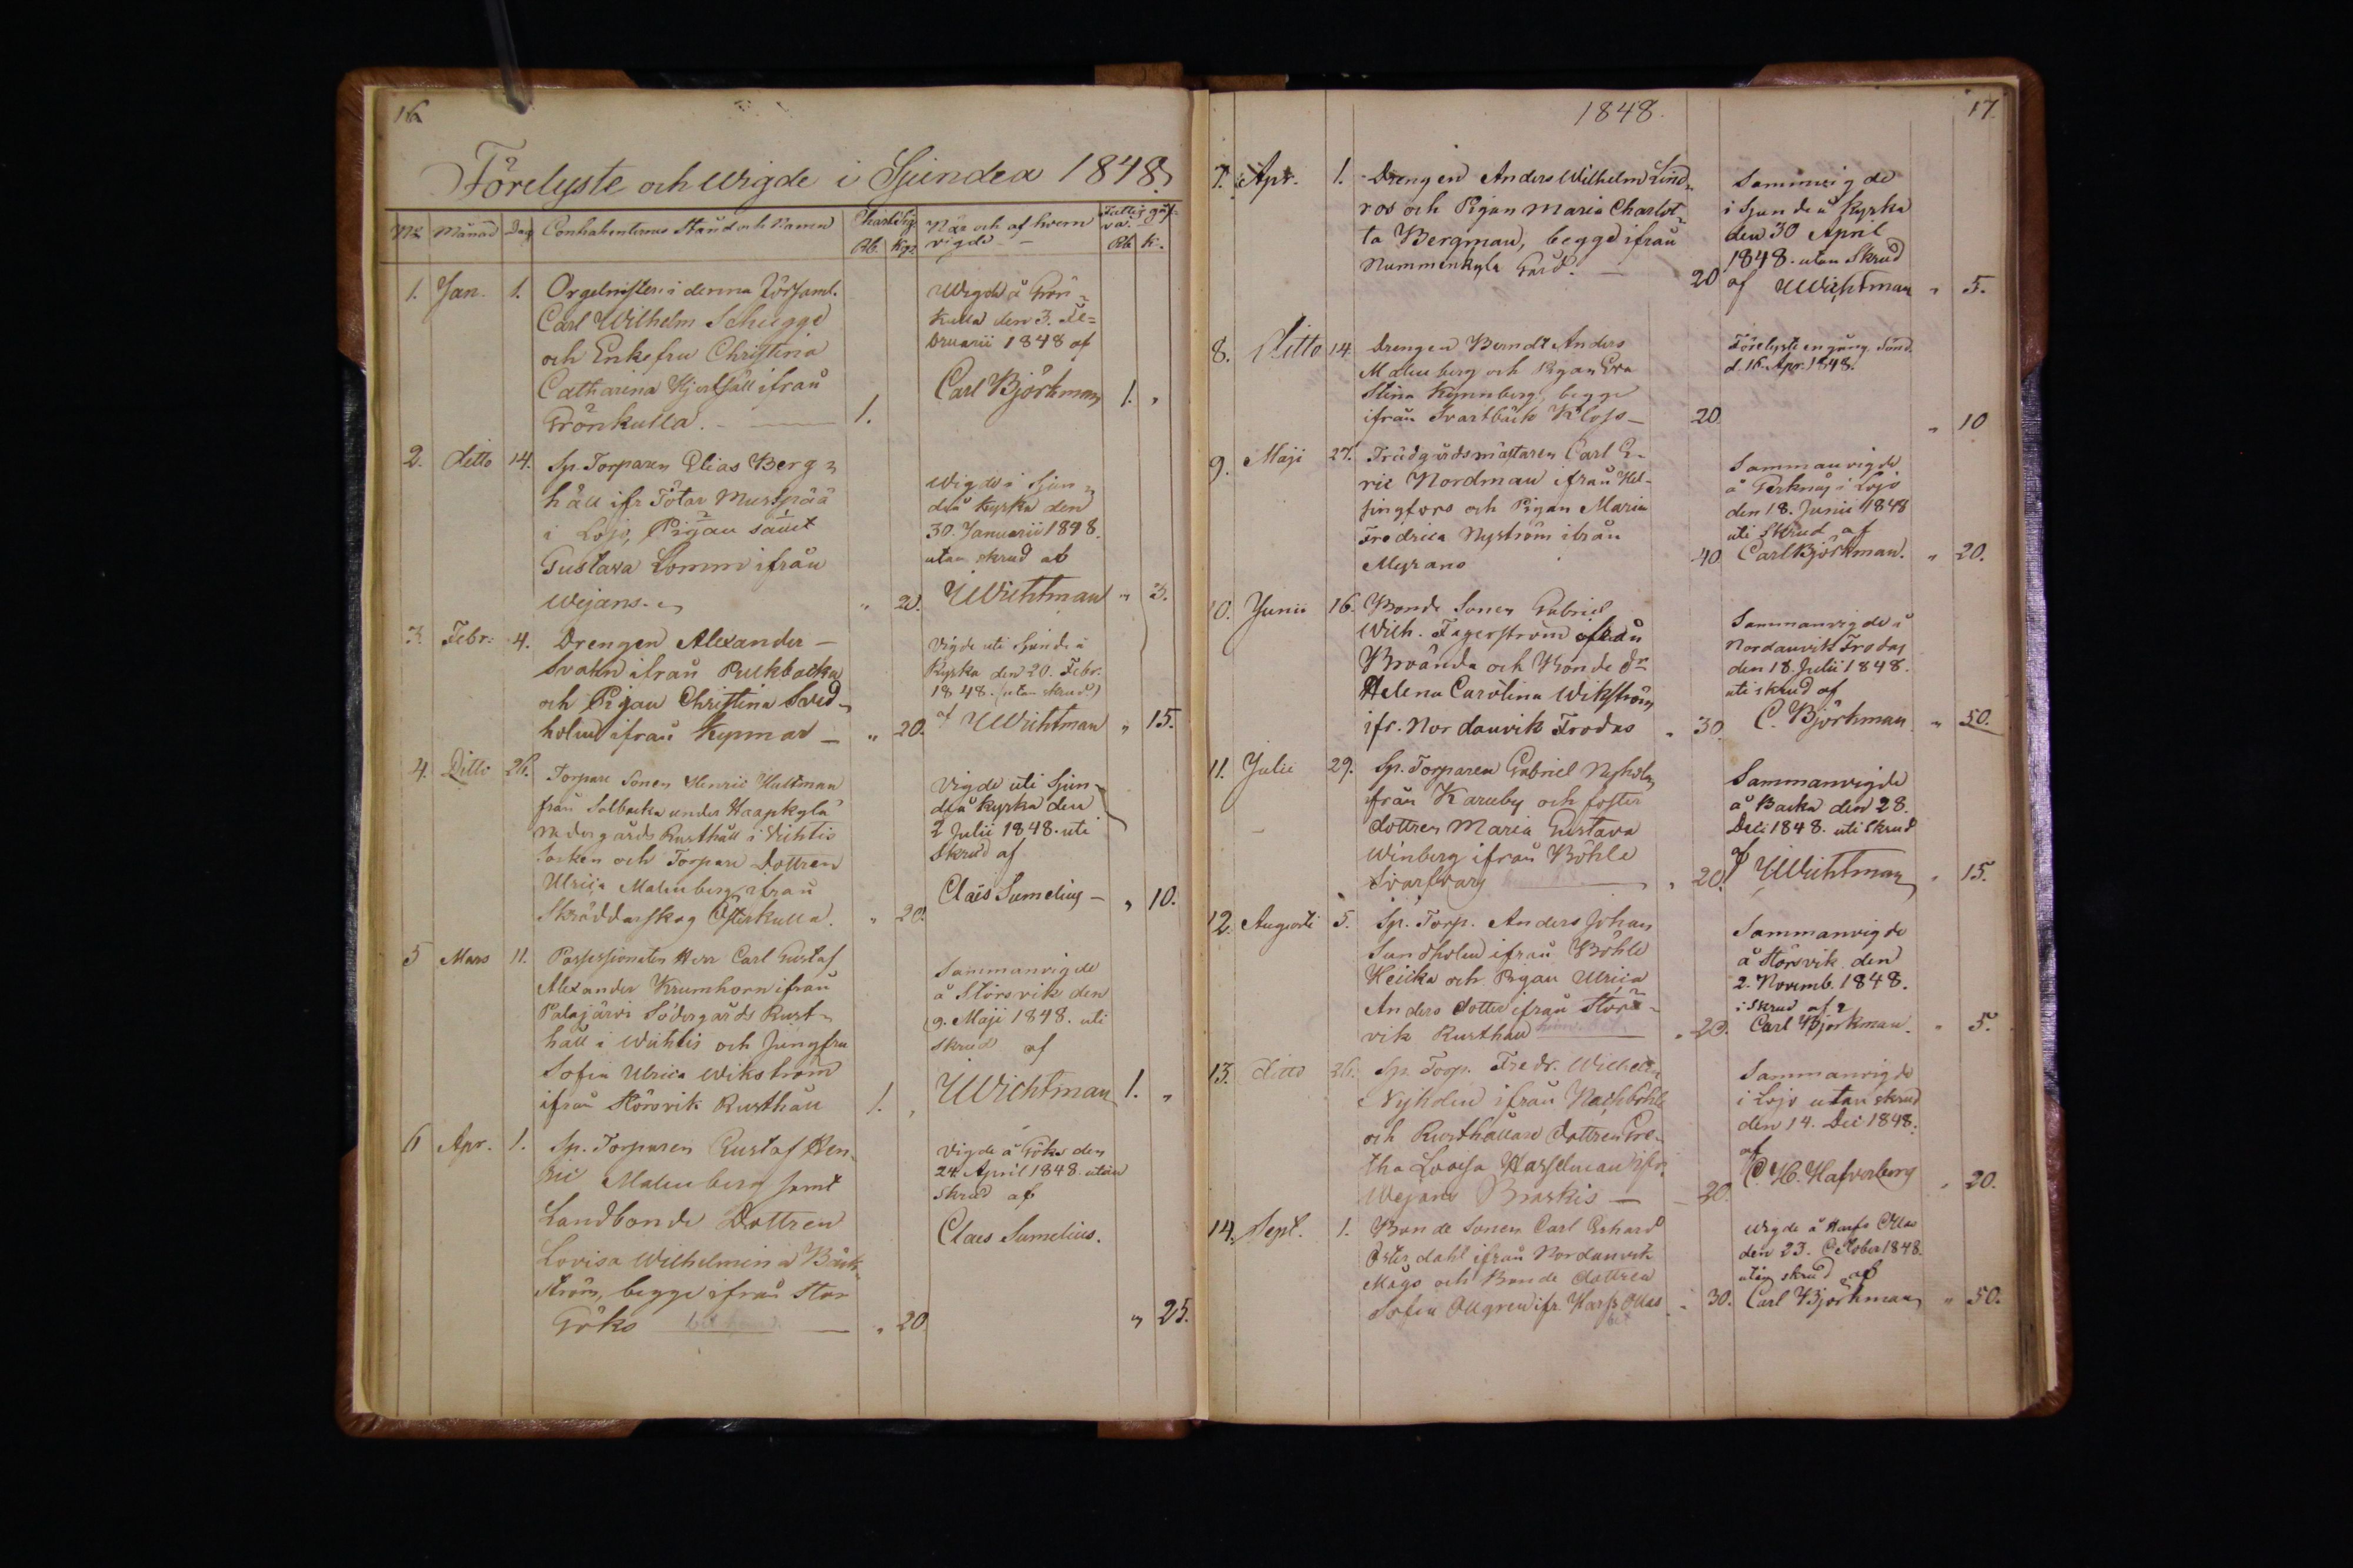 16
Förelyste och Wigde i Sjundeå 1848.
No Månad Dag Contrahenternas Stånd och Namn Rb. Kop. När och af hvem vigde Rb. K.
1. Jan. 1. Orgelnisten i denna Församl.
Carl Wilhelm Schugge
och Enkefru Christina
Catharina ifrån
Grönkulla. 1.
Wigde å Grön-
kulla den 3. Fe-
bruarii 1848 af
Carl Björkman 1. "
2. ditto 14. Sp. Torparen Elias Berg-
häll ifr Tötar
i Lojo, Pigan samt
Gustava Lomm ifrån
Wejans. " 20.
Wigde i Sjun-
deå Kyrka den
30. Januarii 1848.
utan skrud af
Wichtman " 3.
3. Febr: 4. Drengen Alexander
Svahn ifrån Purkbacka
och Pigan Christina Sved-
holm ifrån Kypmar " 20.
Vigde uti Sjundeå
Kyrka den 20. Febr.
1848. (utan skrud)
af Wichtman " 15.
4. Ditto 26. Torpare Sonen Henric Hultman
från Solbacka under Haapkylä
Nedergårds Rusthåll i Vichtis
Socken och Torpare Dottren
Ulrica Malmberg ifrån
Skräddarskog Österkulla. " 20.
Vigde uti Sjun-
deå Kyrka den
2 Julii 1848. uti
Skrud af
Claës Sumelius " 10.
5 Mars 11. Possessionaten Herr Carl Gustaf
Alexander Krumhorn ifrån
Palajärvi Södergårds Rust-
håll i Wichtis och Jungfru
Sofia Ulrica Wikström
ifrån Störsvik Rusthåll 1. "
Sammanvigde
å Störsvik den
9. Maji 1848. uti
skrud af
Wichtman 1. "
6 Apr. 1. Sp. Torparen Gustaf Hen-
ric Malmberg samt
Landbonde Dottren
Lovisa Wilhelmina Bäck-
ström, begge ifrån Stor
Göks " 20.
Vigde å Göks den
24 April 1848. utan
skrud af
Claes Sumelius.
" 25.
1848.
17.
7. Apr. 1. Drengen Anders Wilhelm Lind-
ros och Pigan Maria Charlot-
ta Bergman, begge ifrån
Nummenkylä Gård. 20
Sammanvigde
i Sjundeå Kyrka
den 30 April
1848. utan Skrud
af Wichtman " 5.
8. ditto 14 Drengen Berndt Anders
Malmberg och Pigan Eva
Stina Kynnberg, begge
ifrån Svartbäck Kloss 20
Förelyste en gång Sönd.
d. 16. Apr. 1848.
" 10
9. Maji 27. Trädgårdsmästaren Carl E-
ric Nordman ifrån Hel-
singfors och Pigan Maria
Fredrica Nyström ifrån
Myrans 40
Sammanvigde
å Gerknäs i Lojo
den 18. Junii 1848
uti Skrud af
Carl Björkman. " 20.
10. Junii 16. Bonde Sonen Gabriel
Wilh. Fagerström ifrån
Bråända och Bonde dr
Helena Carolina Wikström
ifr. Nordanvik Frodas " 30.
Sammanvigde å
Nordanvik Frodas
den 18. Julii 1848.
uti skrud af
C. Björkman " 50.
11. Julii 29. Sp. Torparen Gabriel Nyholm
ifrån Karuby och foster
dottren Maria Gustava
Winberg ifrån Böhle
Svartvarg " 20.
Sammanvigde
å Backa den 28.
Deci 1848. uti Skrud
af Wichtman " 15.
12. Augusti 5. Sp. Torp. Anders Johan
Sundholm ifrån Böhle
Heicka och Pigan Ulrica
Anders dotter ifrån Störs-
vik Rusthåll " 20.
Sammanvigde
å Störsvik den
2. Novemb. 1848.
i Skrud af
Carl Björkman. " 5.
13. ditto 26. Sp. Torp. Fredr. Wilhelm
Nyholm ifrån Nachböhle
och Rusthållare Dottren Gre-
tha Lovisa Hasselman ifr.
Wejans Braskis 20.
Sammanvigde
i Lojo utan skrud
den 14. Dec 1848.
af
C. H. Hafverberg " 20.
14. Sept. 1. Bonde Sonen Carl Erhard
Österdahl ifrån Nordanvik
Mågs och Bonde dottren
Sofia Ollgren ifr. Harfs Ollas " 30.
Wigde å Harfs Ollas
den 23. October 1848.
utan skrud af
Carl Björkman " 50.